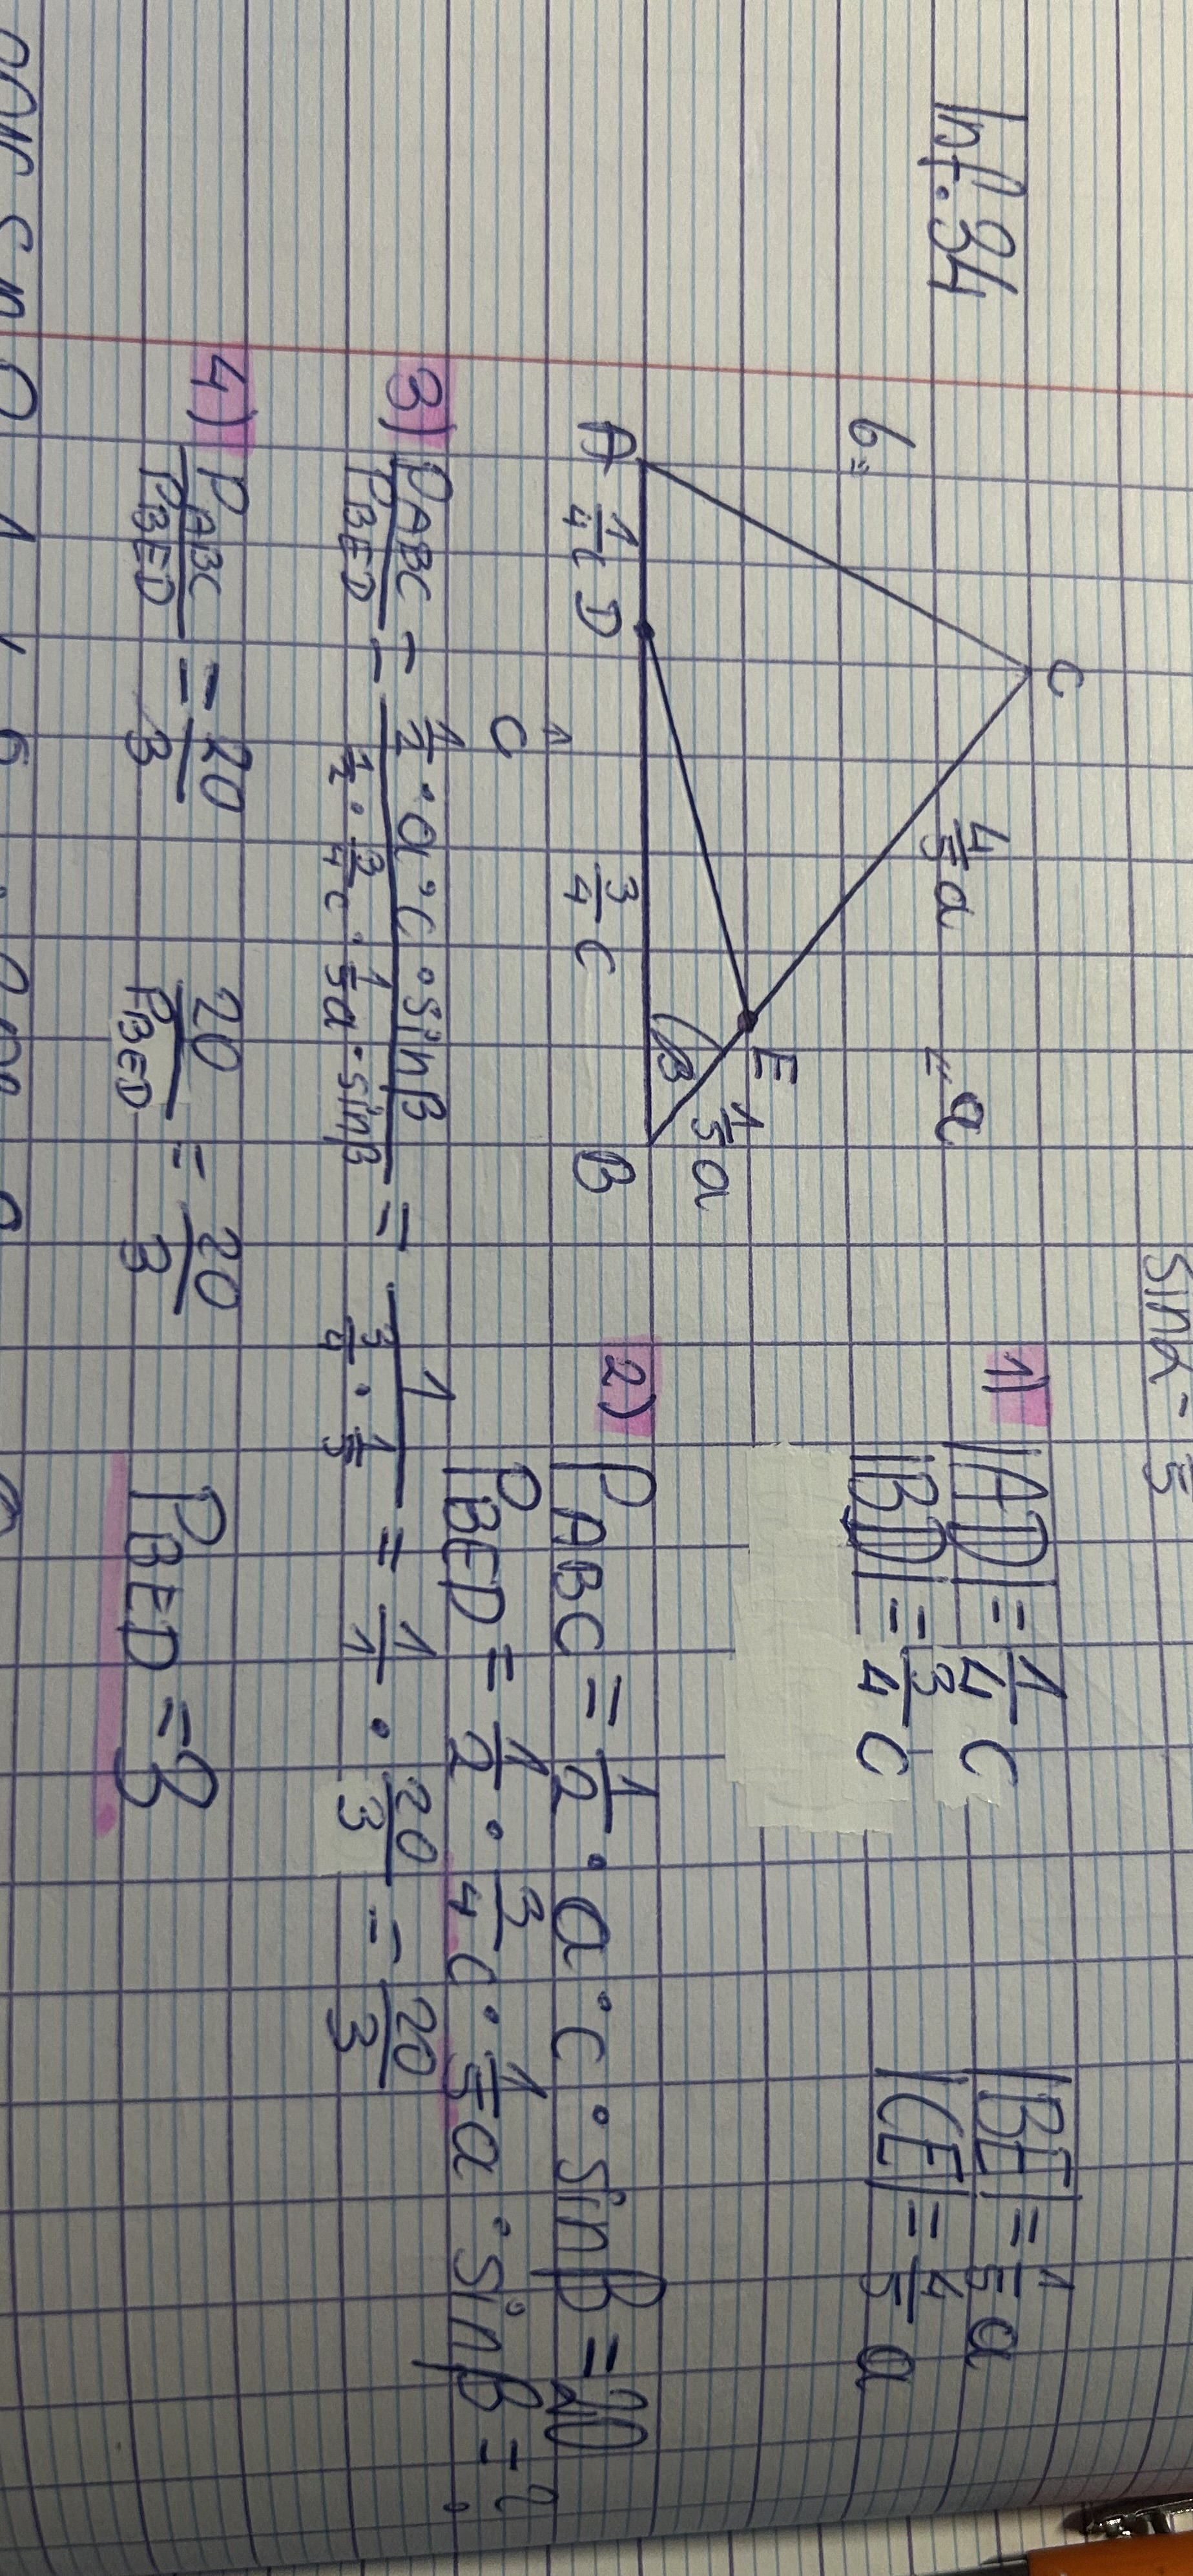 sinα = 5
Inf. 34
C
b=
4/5 a
= a
E
1/5 a
β
A 1/4 c D 3/4 c B
c
1) |AD| = 1/4 c |BE| = 1/5 a
|BD| = 3/4 c |CE| = 4/5 a
2) P ABC = 1/2 · a · c · sinβ = 20
P BED = 1/2 · 3/4 c · 1/5 a · sinβ = ?
3) P ABC / P BED = (1/2 · a · c · sinβ) / (1/2 · 3/4 c · 1/5 a · sinβ) = 1 / (3/4 · 1/5) = 1/1 · 20/3 = 20/3
4) P ABC / P BED = 20/3 20 / P BED = 20/3 P BED = 3